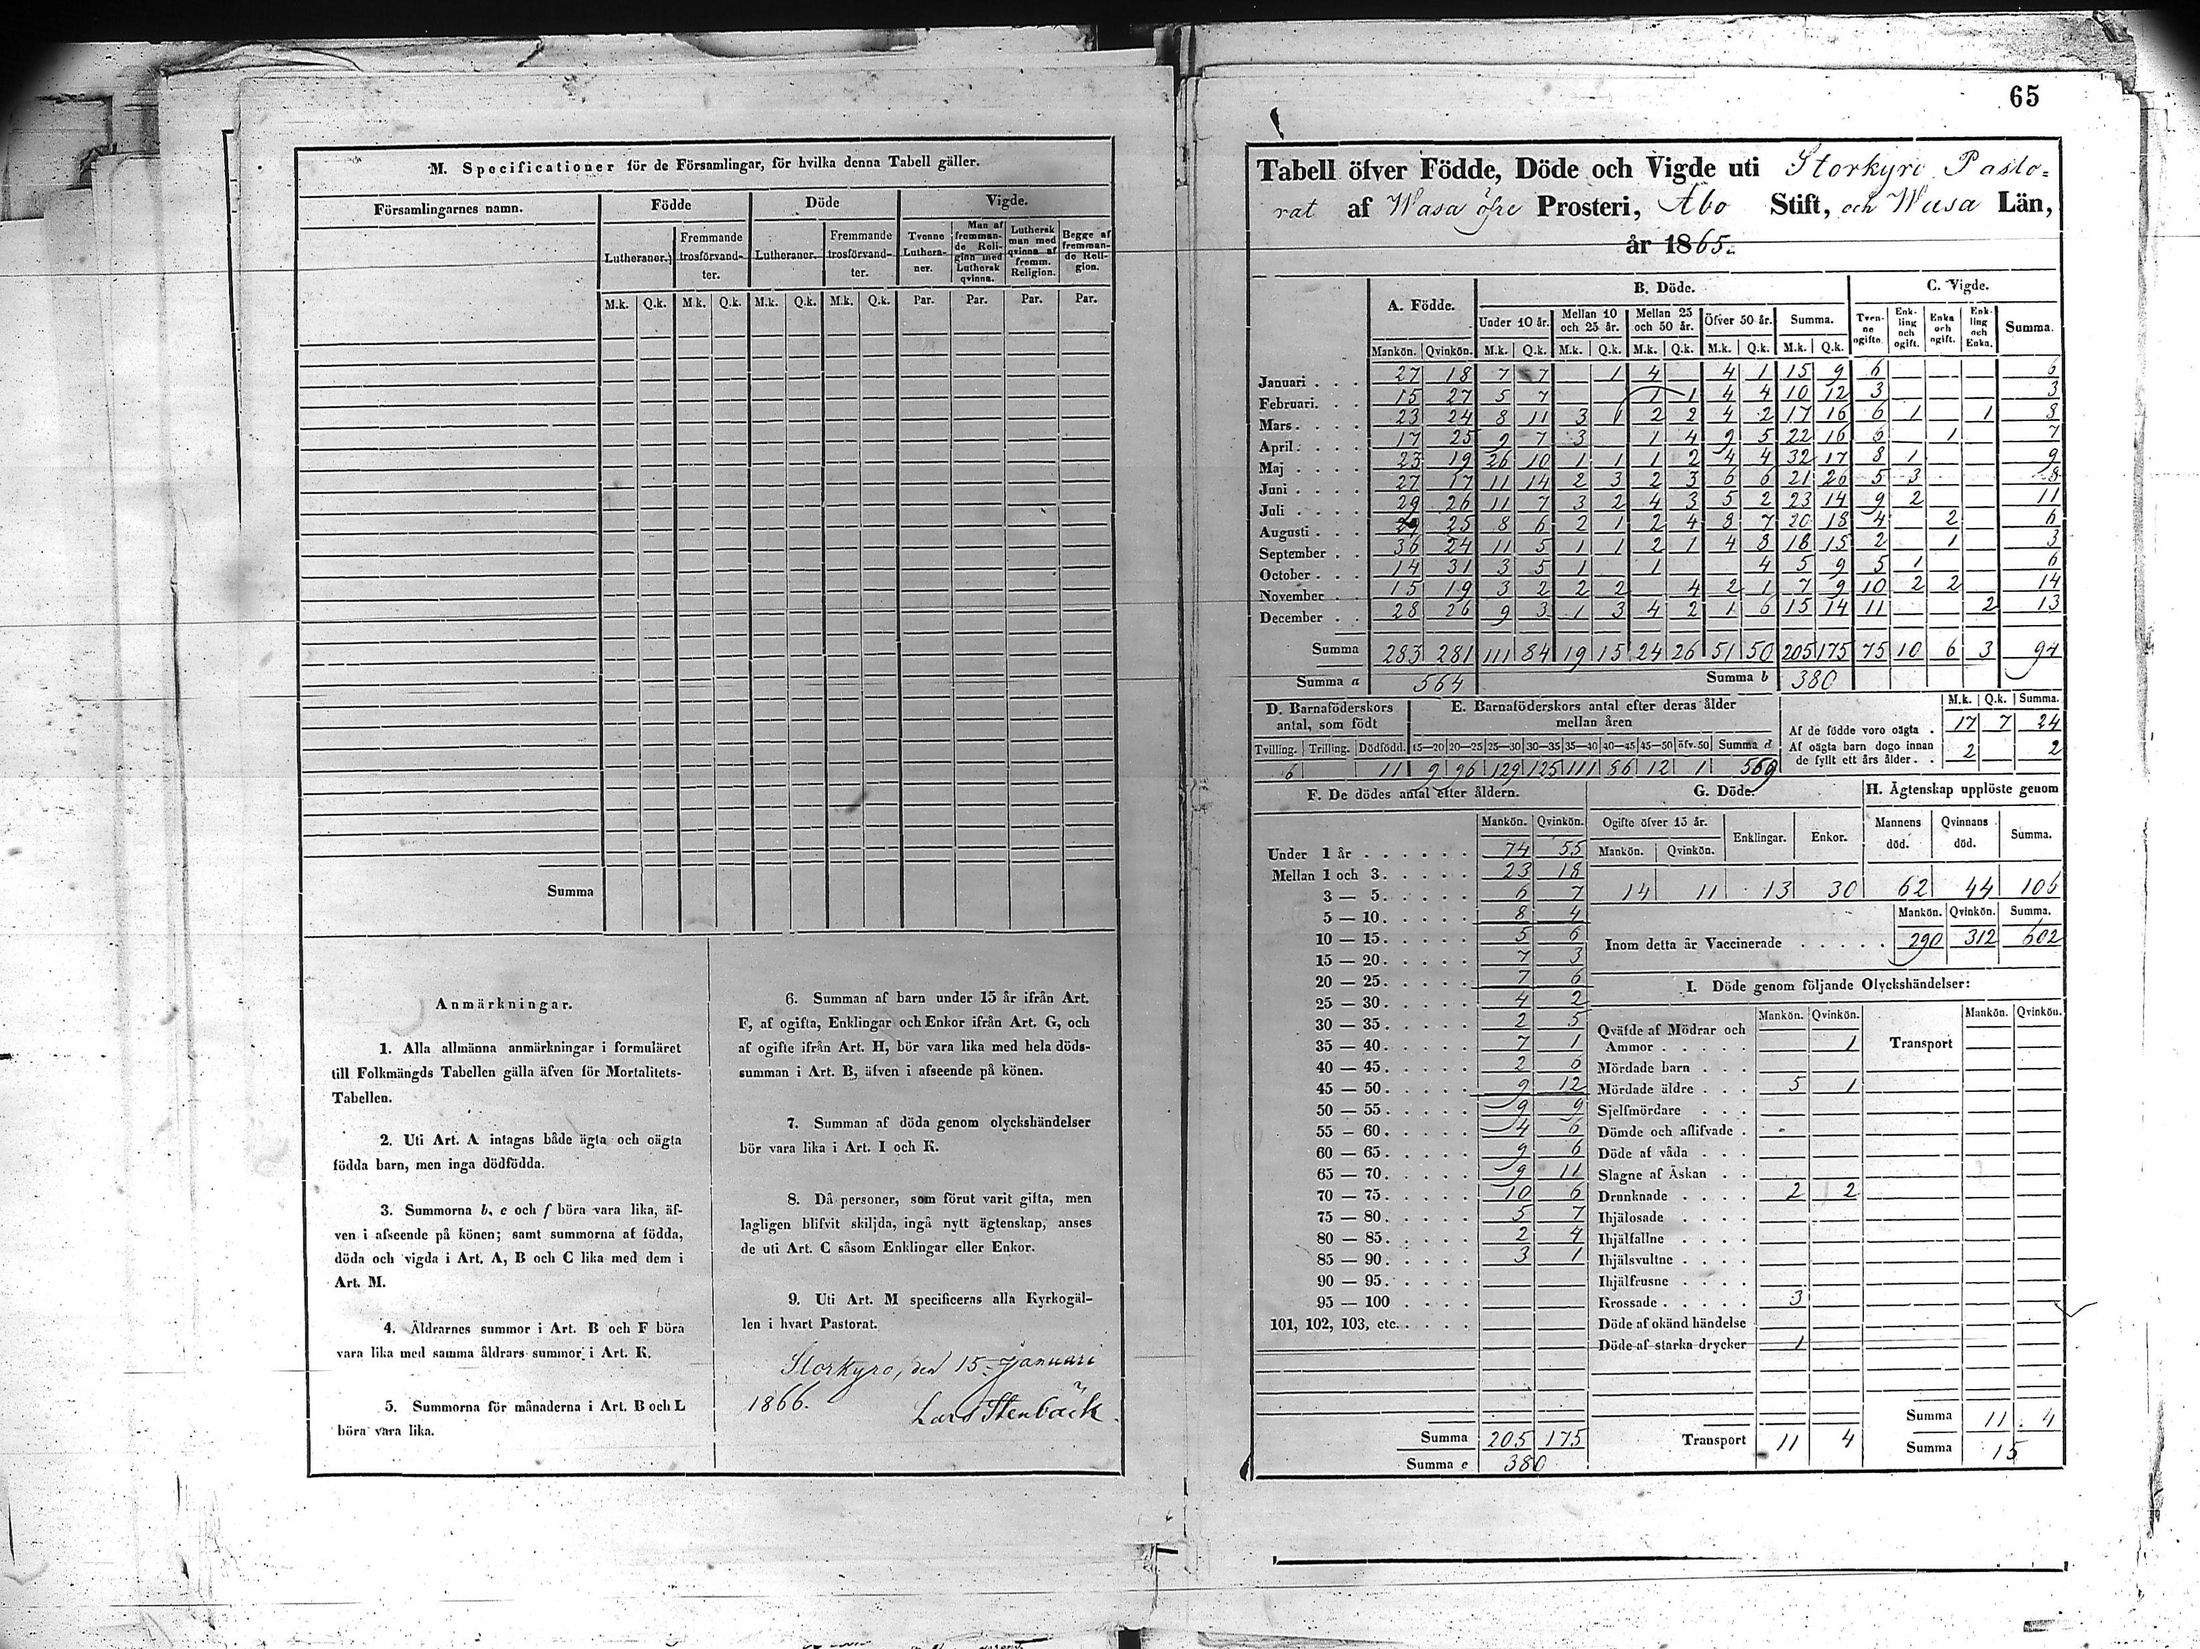 M. Specificationer för de Församlingar, för hvilka denna Tabell gäller.
Församlingarnes namn. Födde Döde Vigde.
Lutheraner. Fremmande trosförvandter. Lutheraner. Fremmande trosförvandter. Tvenne Lutheraner. Man af fremmande Religion med Luthersk qvinna. Luthersk man med qvinna af fremm. Religion. Begge af fremmande Religion.
M.k. Q.k. M.k. Q.k. M.k. Q.k. M.k. Q.k. Par. Par. Par. Par.
Summa
Anmärkningar.
1. Alla allmänna anmärkningar i formuläret
till Folkmängds Tabellen gälla äfven för Mortalitets-
Tabellen.
2. Uti Art. A intagas både ägta och oägta
födda barn, men inga dödfödda.
3. Summorna b, e och f böra vara lika, äf-
ven i afseende på könen; samt summorna af födda,
döda och vigda i Art. A, B och C lika med dem i
Art. M.
4. Äldrarnes summor i Art. B och F böra
vara lika med samma åldrars summor i Art. K.
5. Summorna för månaderna i Art. B och L
böra vara lika.
6. Summan af barn under 15 år ifrån Art.
F, af ogifta, Enklingar och Enkor ifrån Art. G, och
af ogifte ifrån Art. H, bör vara lika med hela döds-
summan i Art. B, äfven i afseende på könen.
7. Summan af döda genom olyckshändelser
bör vara lika i Art. I och K.
8. Då personer, som förut varit gifta, men
lagligen blifvit skiljda, ingå nytt ägtenskap, anses
de uti Art. C såsom Enklingar eller Enkor.
9. Uti Art. M specificeras alla Kyrkogäl-
len i hvart Pastorat.
Storkyro, den 15 Januari
1866.
Lars Stenbäck.
65
Tabell öfver Födde, Döde och Vigde uti Storkyro Pasto=
rat af Wasa öfre Prosteri, Åbo Stift, och Wasa Län,
år 1865.
A. Födde. B. Döde. C. Vigde.
Under 10 år. Mellan 10 och 25 år. Mellan 25 och 50 år. Öfver 50 år. Summa. Tvenne ogifte. Enkling och ogift. Enka och ogift. Enkling och Enka. Summa.
Mankön. Qvinkön. M.k. Q.k. M.k. Q.k. M.k. Q.k. M.k. Q.k. M.k. Q.k.
Januari 27 18 7 7 1 4 4 1 15 9 6 6
Februari 15 27 5 7 1 1 4 4 10 12 3 3
Mars 23 24 8 11 3 1 2 2 4 2 17 16 6 1 1 8
April 17 25 9 7 3 1 4 9 5 22 16 6 1 7
Maj 23 19 26 10 1 1 1 2 4 4 32 17 8 1 9
Juni 27 17 11 14 2 3 2 3 6 6 21 26 5 3 8
Juli 29 26 11 7 3 2 4 3 5 2 23 14 9 2 11
Augusti 29 25 8 6 2 1 2 4 8 7 20 18 4 2 6
September 36 24 11 5 1 1 2 1 4 8 18 15 2 1 3
October 14 31 3 5 1 1 4 5 9 5 1 6
November 15 19 3 2 2 2 4 2 1 7 9 10 2 2 14
December 28 26 9 3 1 3 4 2 1 6 15 14 11 2 13
Summa 283 281 111 84 19 15 24 26 51 50 205 175 75 10 6 3 94
Summa a 564 Summa b 380
D. Barnaföderskors antal, som födt
Tvilling. Trilling. Dödfödd.
6 11
E. Barnaföderskors antal efter deras ålder mellan åren
15—20 20—25 25—30 30—35 35—40 40—45 45—50 öfv. 50 Summa d
9 96 129 125 111 86 12 1 569
M.k. Q.k. Summa.
Af de födde voro oägta 17 7 24
Af oägta barn dogo innan de fyllt ett års ålder 2 2
F. De dödes antal efter åldern.
Mankön. Qvinkön.
Under 1 år 74 55
Mellan 1 och 3 23 18
3 — 5 6 7
5 — 10 8 4
10 — 15 5 6
15 — 20 7 3
20 — 25 7 6
25 — 30 4 2
30 — 35 2 5
35 — 40 7 1
40 — 45 2 6
45 — 50 9 12
50 — 55 9 9
55 — 60 4 6
60 — 65 9 6
65 — 70 9 11
70 — 75 10 6
75 — 80 5 7
80 — 85 2 4
85 — 90 3 1
90 — 95
95 — 100
101, 102, 103, etc.
Summa 205 175
Summa e 380
G. Döde.
Ogifte öfver 15 år. Enklingar. Enkor.
Mankön. Qvinkön.
14 11 13 30
H. Ägtenskap upplöste genom
Mannens död. Qvinnans död. Summa.
62 44 106
Mankön. Qvinkön. Summa.
Inom detta år Vaccinerade 290 312 602
I. Döde genom följande Olyckshändelser:
Mankön. Qvinkön. Mankön. Qvinkön.
Qväfde af Mödrar och Ammor 1 Transport
Mördade barn
Mördade äldre 5 1
Sjelfmördare
Dömde och aflifvade
Döde af våda
Slagne af Åskan
Drunknade 2 2
Ihjälosade
Ihjälfallne
Ihjälsvultne
Ihjälfrusne
Krossade 3
Döde af okänd händelse
Döde af starka drycker 1
Summa 11 4
Transport 11 4 Summa 15